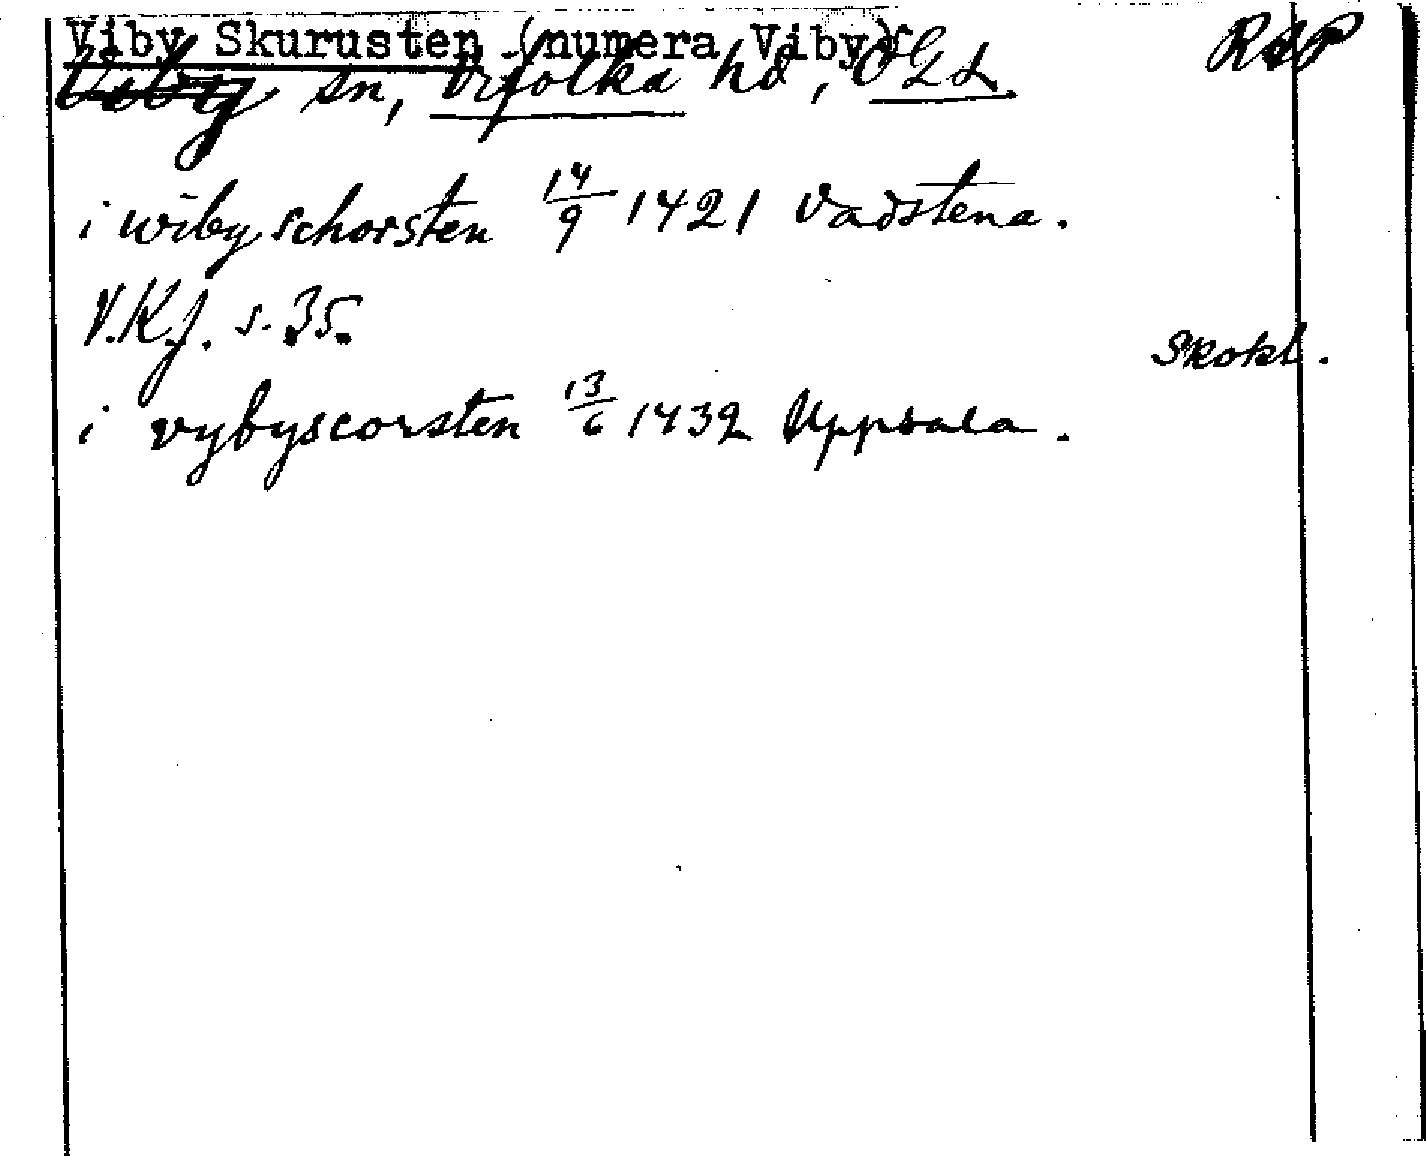 Viby Skurusten (numera Viby)
Viby sn, Vifolka hd, ÖGL. RAP
i wiby schorsten 14/9 1421 Vadstena.
V.K.J. s. 35.
Skokl.
i vybyscorsten 13/6 1432 Uppsala.